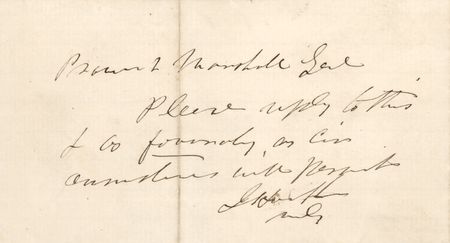 Provost Marshall Genl
Please reply to this
& as favorably as cir
cumstances will permit